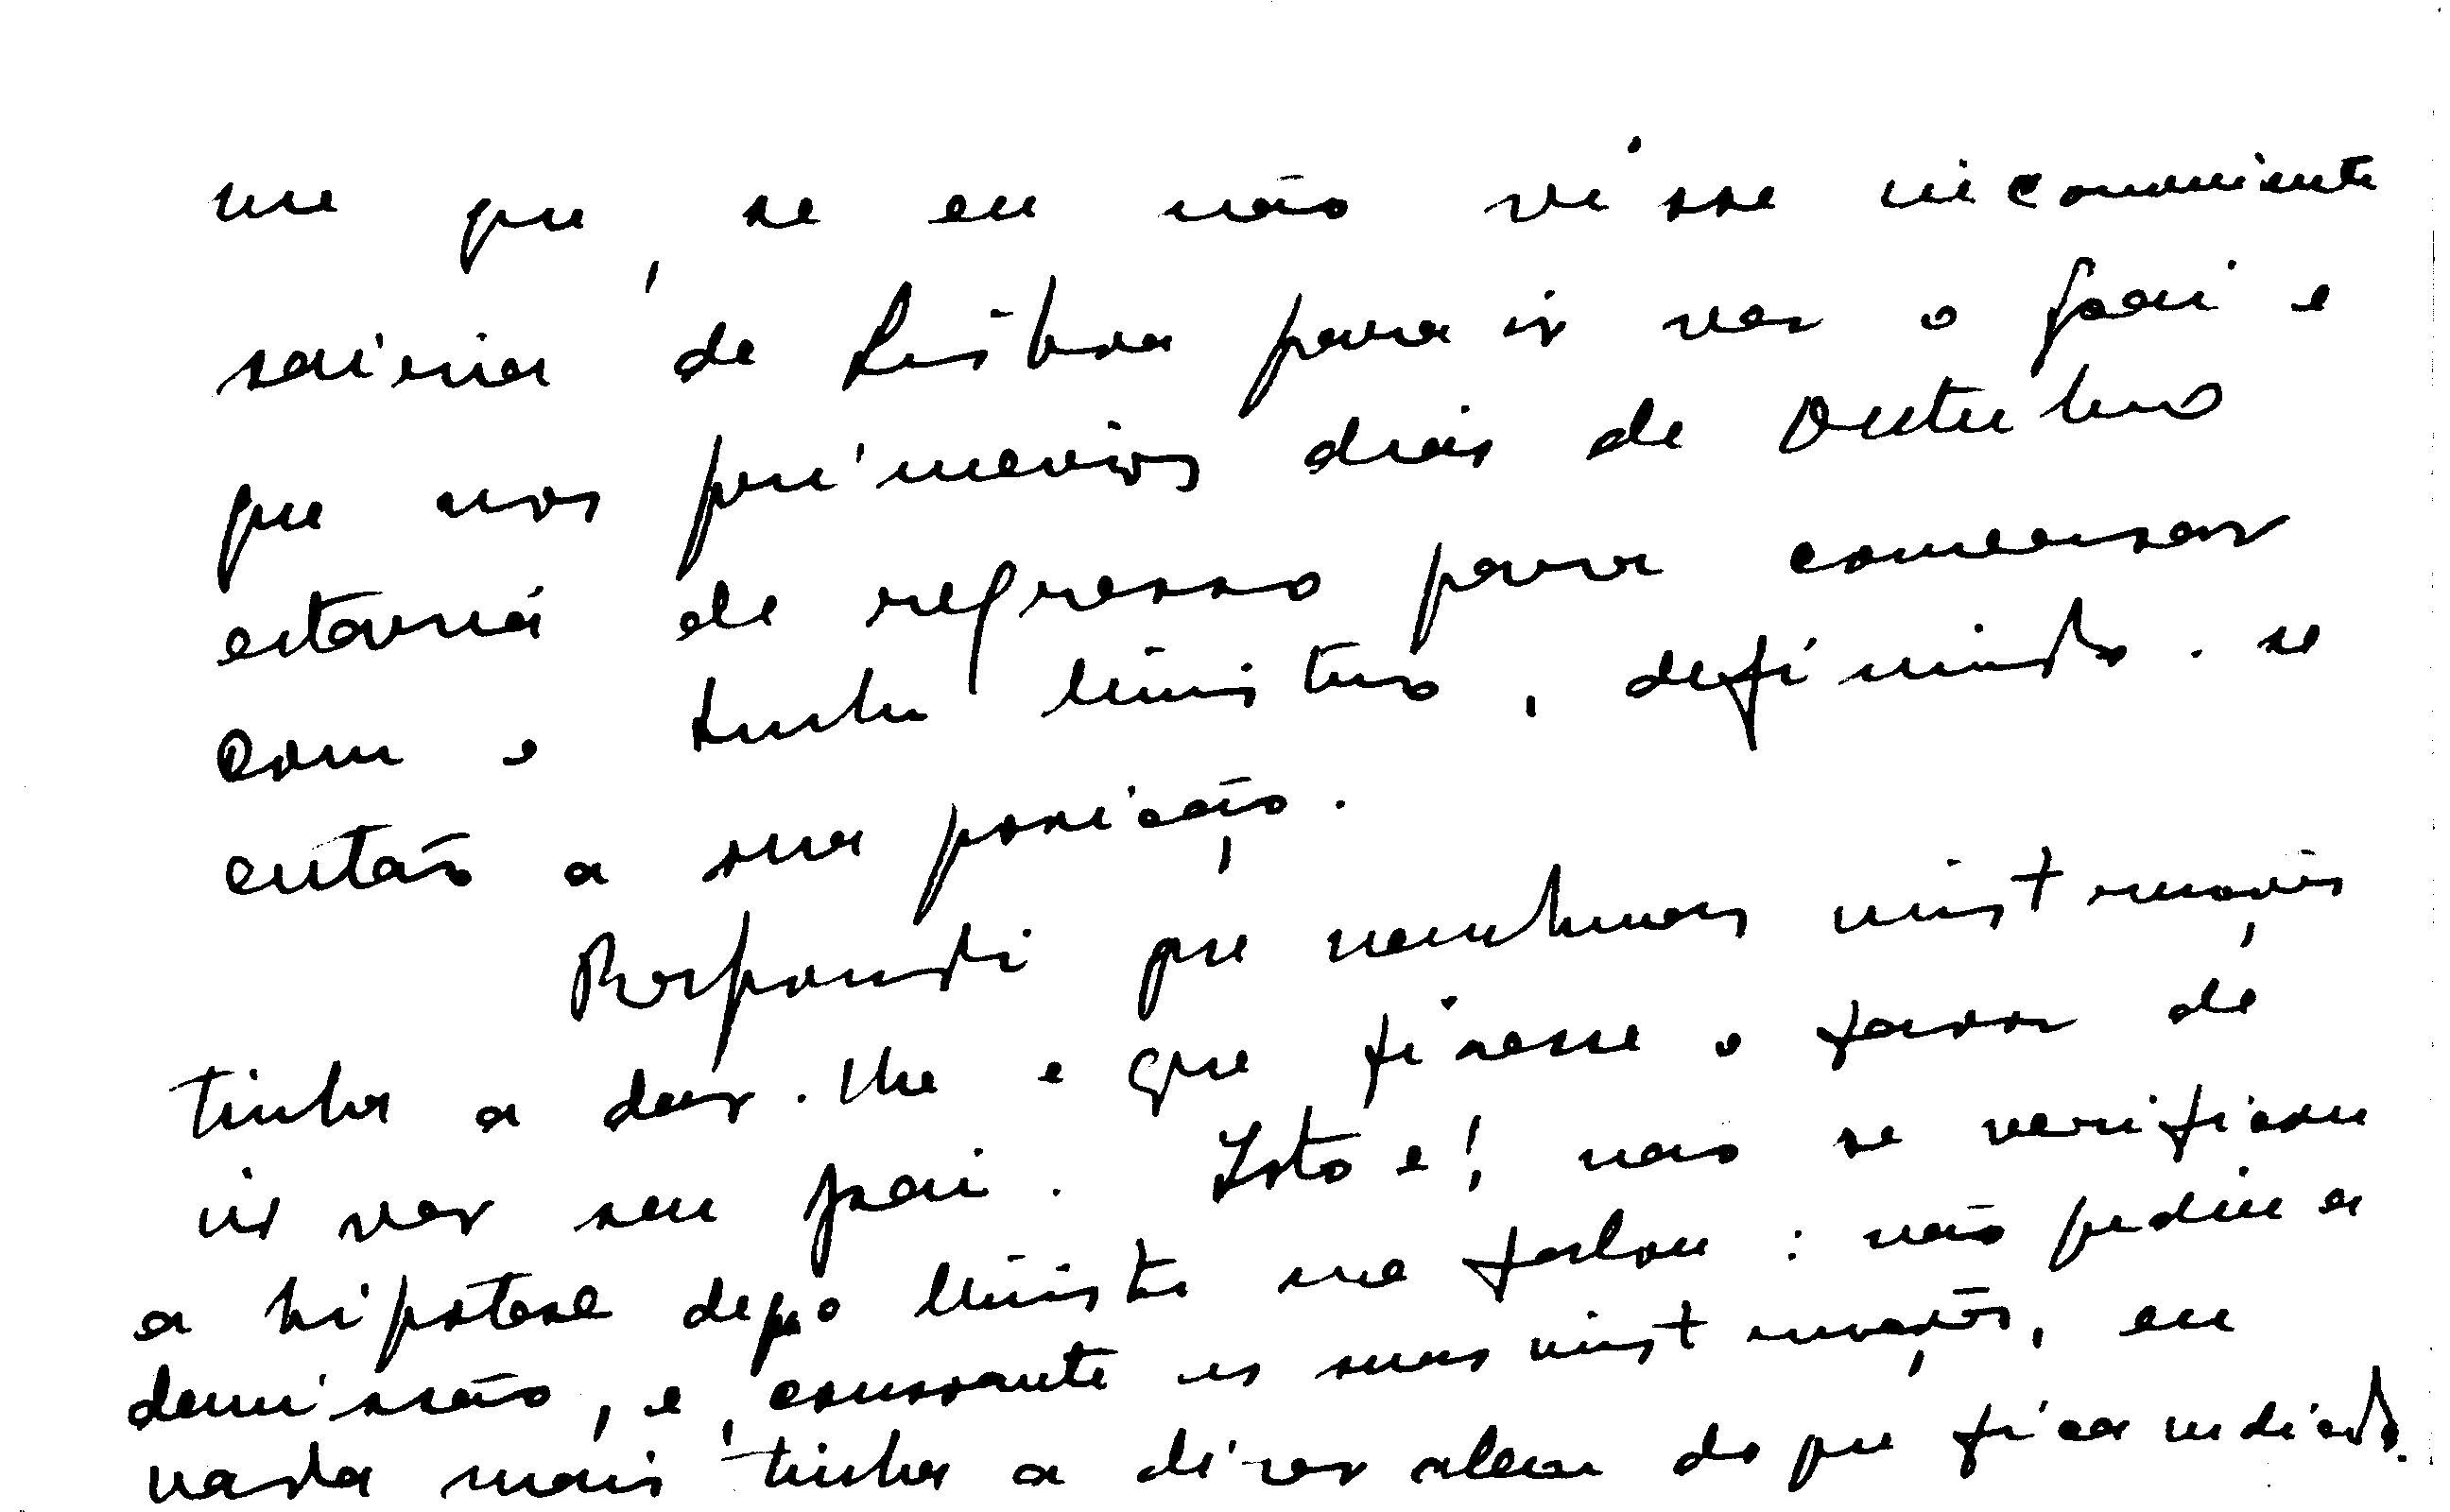 me que, se eu não visse inconveniente
sairia de Lisboa para ir ver o pai e
que nos primeiros dias de Outubro
estaria de regresso para conversar
com o Senhor Ministro, definindo-se
então a sua posição.
Respondi que nenhumas instruções
tinha a dar-lhe e que fizesse o favor de
ir ver seu pai. Isto é, não se verificou
a hipotese de que o Ministro me falou: não pediu a
demissão, e, consoante as suas instruções, eu
nada mais tinha a dizer alem do que fica indicado.